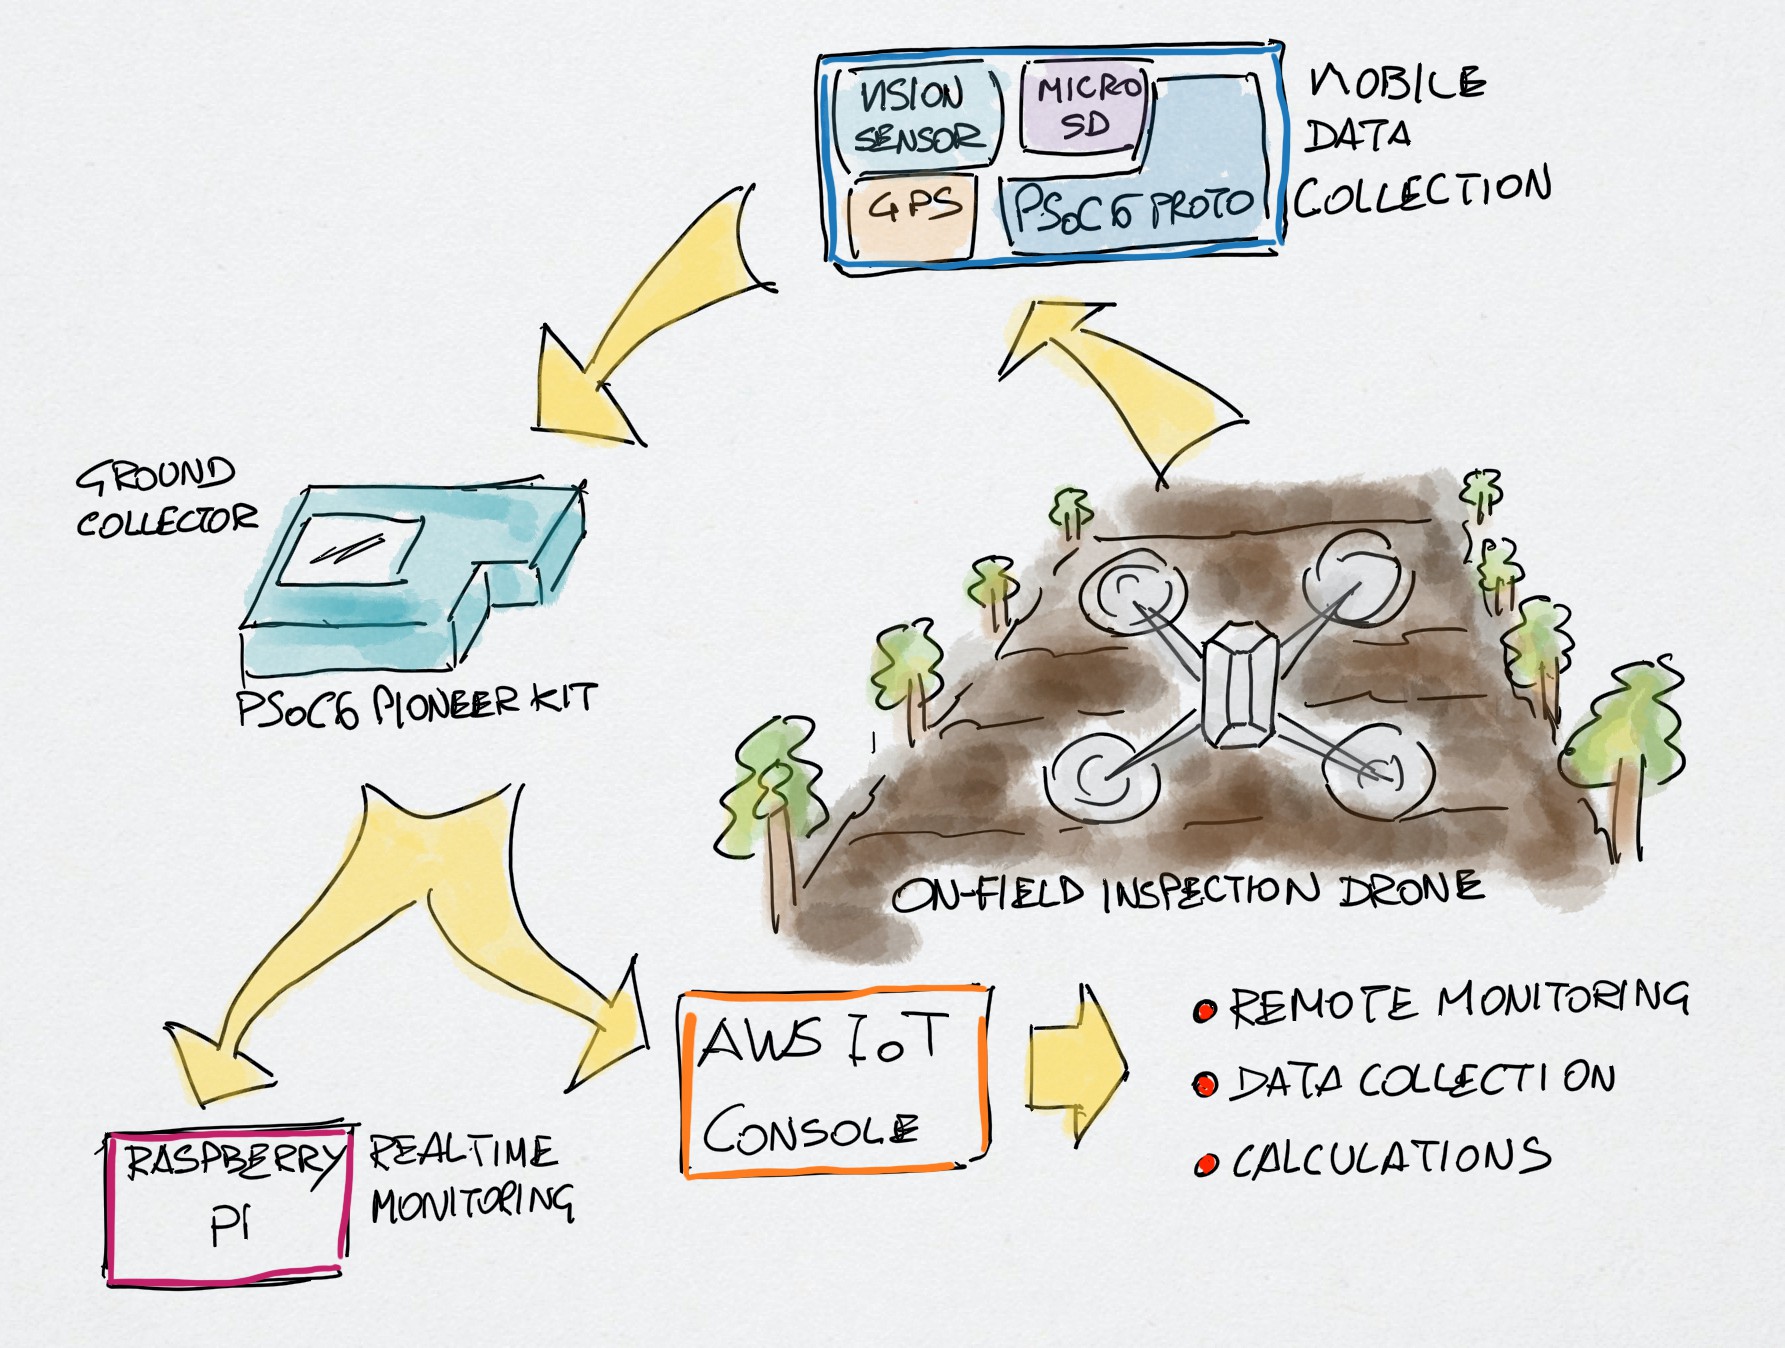 VISION
SENSOR
MICRO
SD
GPS
PSoC6 PROTO
MOBILE
DATA
COLLECTION
GROUND
COLLECTOR
PSoC6 PIONEER KIT
ON-FIELD INSPECTION DRONE
RASPBERRY
PI
REALTIME
MONITORING
AWS IoT
CONSOLE
REMOTE MONITORING
DATA COLLECTION
CALCULATIONS